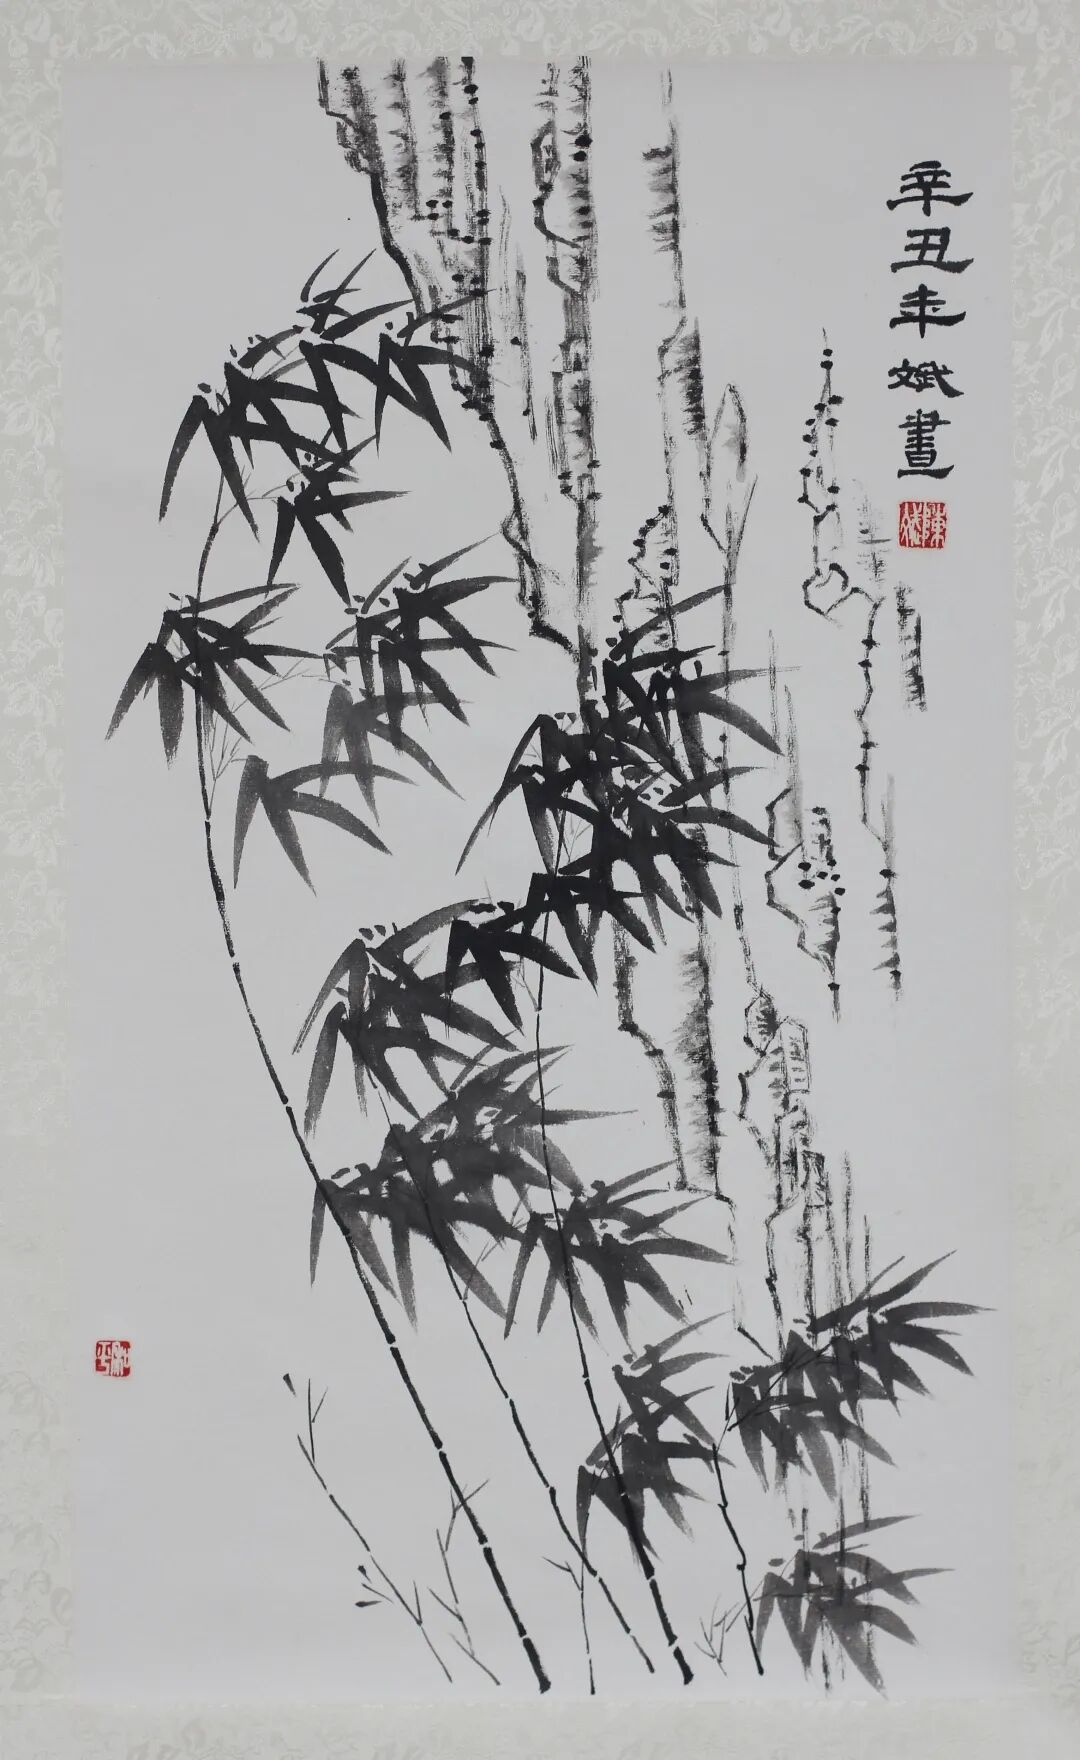 辛丑年斌畫
陳斌